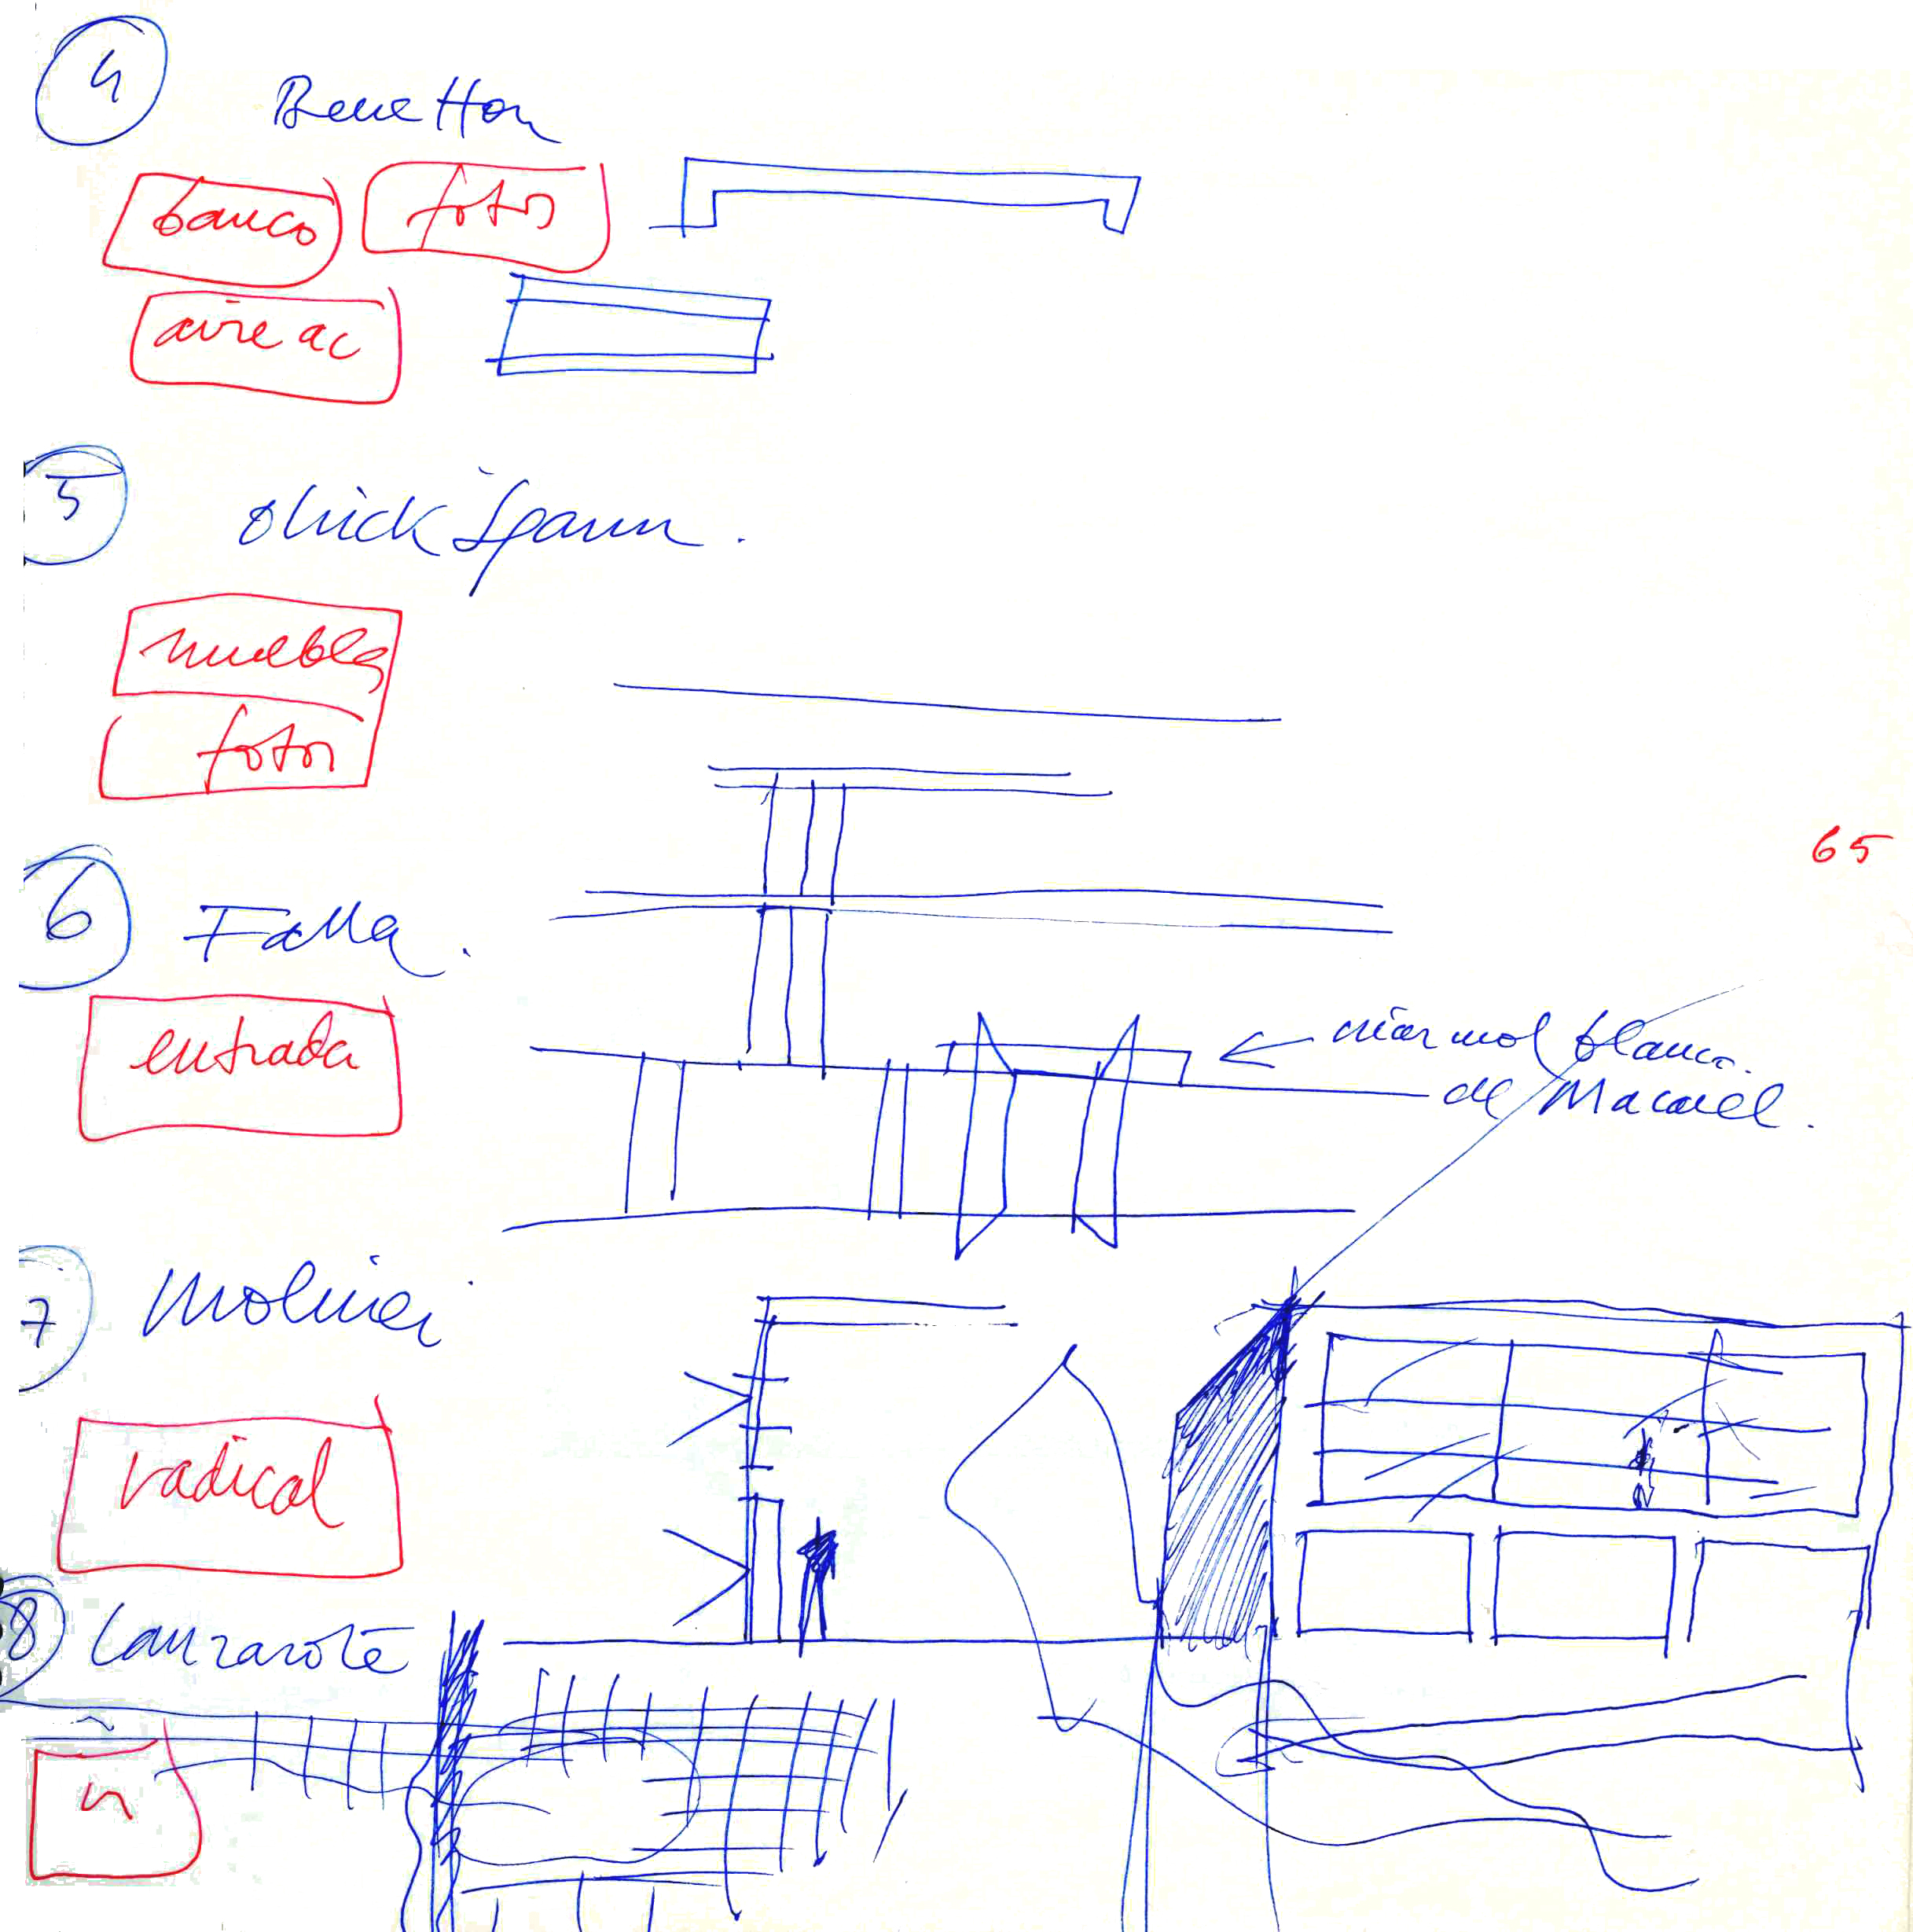 4
Benetton
banco fotos
aire ac
5
muebles
fotos
65
6
Falla.
entrada
mármol blanco.
de Macael.
7
Moliner
radical
8 Lanzarote